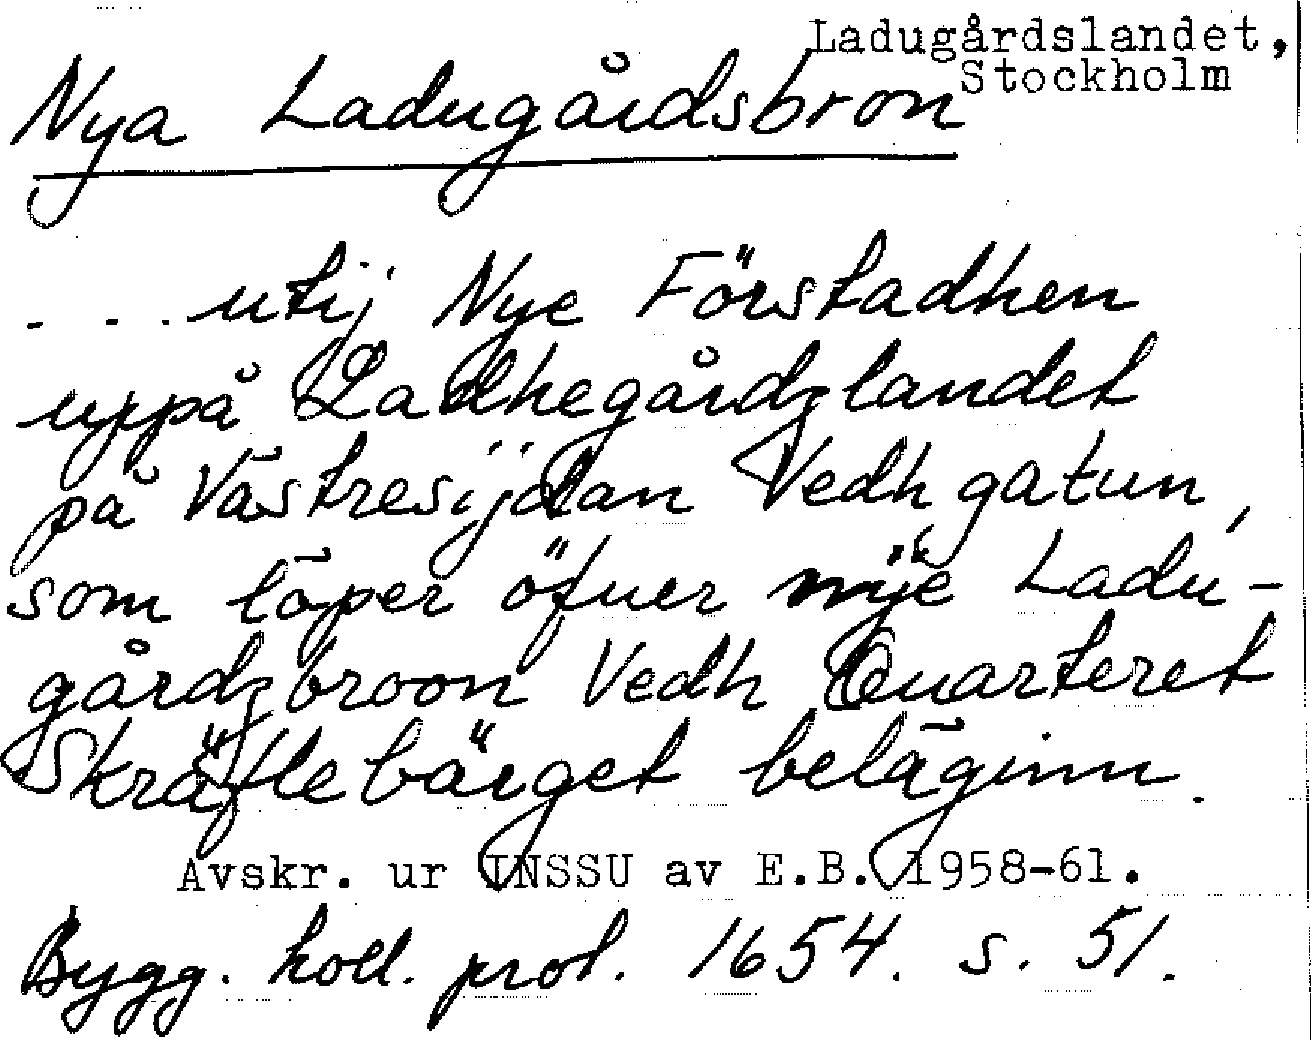 Ladugårdslandet,
Stockholm
Nya Ladugårdsbron
. . . utij Nye Förstadhen
uppå Ladhegårdzlandet
på Västresijdan Vedh gatun,
som löper öfuer nÿe Ladu-
gårdzbroon Vedh Quarteret
Skräflebärget beläginn.
Avskr. ur INSSU av E.B. 1958-61.
Bygg. koll. prot. 1654. s. 51.